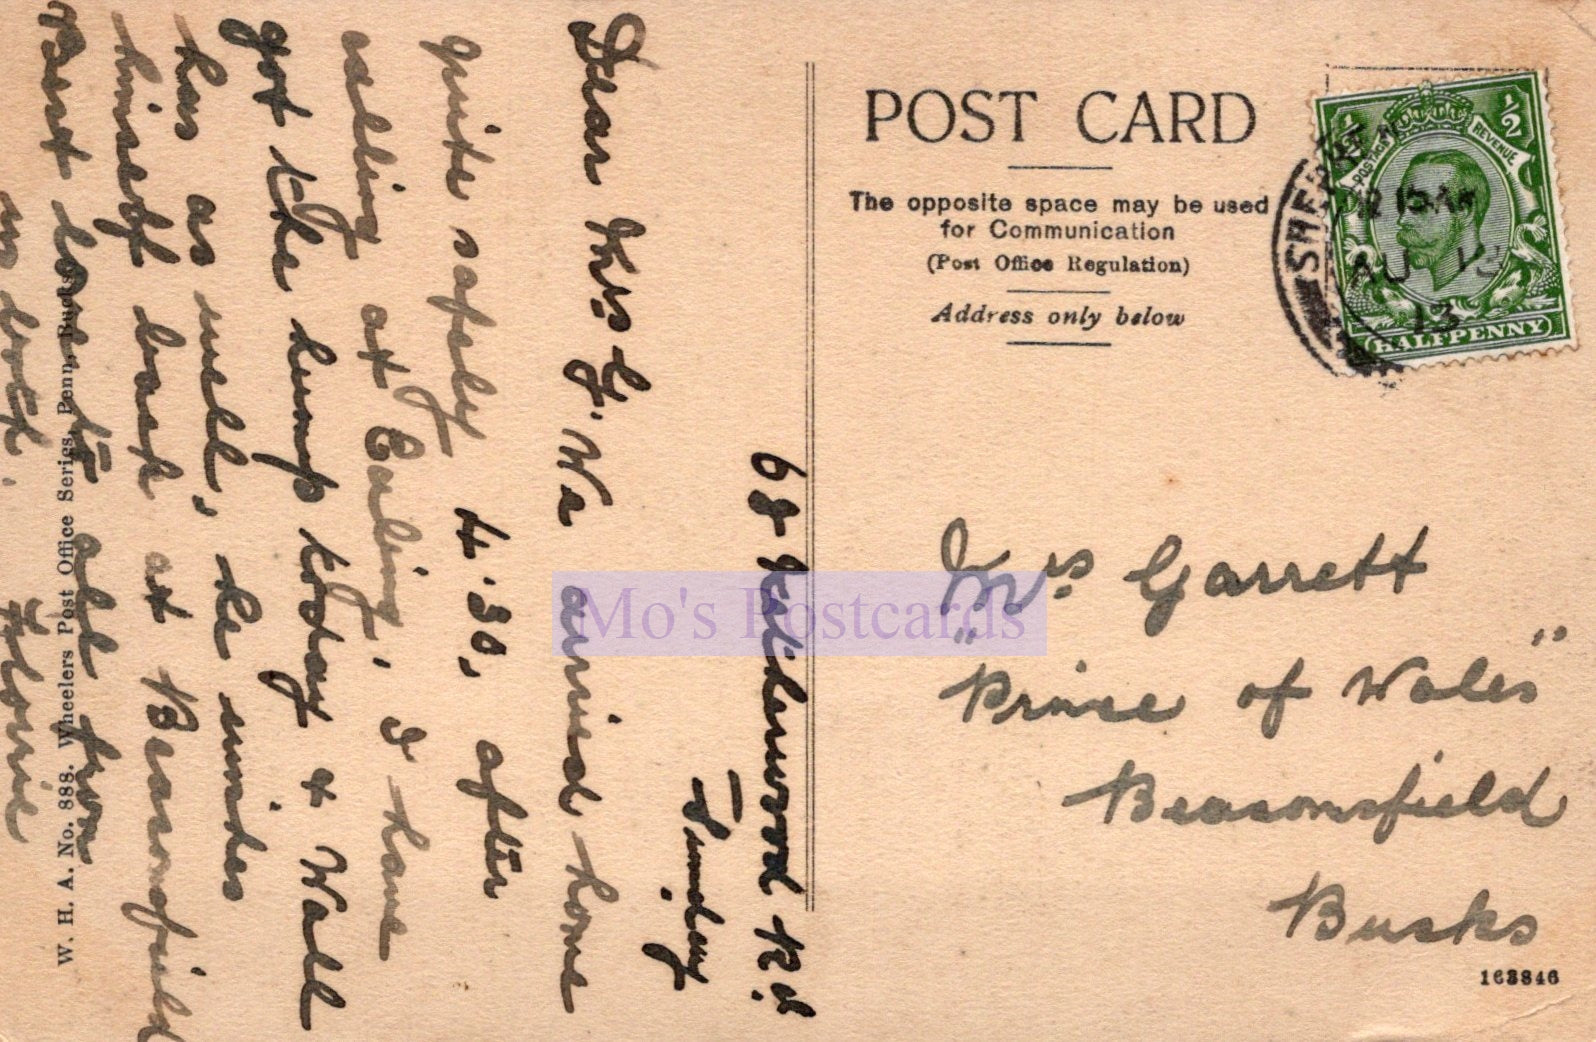 POST CARD
The opposite space may be used
for Communication
(Post Office Regulation)
Address only below
½ ½
POSTAGE REVENUE
HALFPENNY
12 15AM
AU 18
13
68 Rd.
Dear Mrs G. We arrived home
quite safely 4.30, after
calling at Ealing, I have
got the lump today & Wall
has as well, he wishes
himself back at Beaconsfield
Best love to all from
us both. Florrie
Mrs Garrett
"Prince of Wales"
Beaconsfield
Bucks
163846
W. H. A. No. 888. Wheelers Post Office Series, Penn, Bucks.
Mo's Postcards